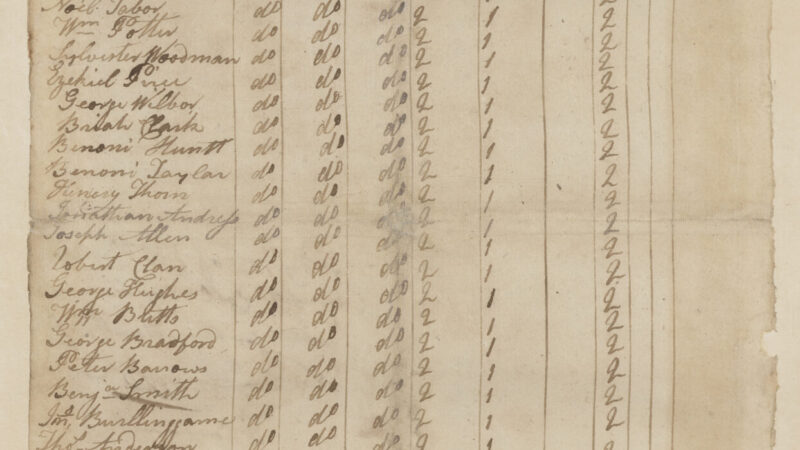 Noel Tabor do do do 2 1 2
Wm Potter do do do 2 1 2
Sylvester Woodman do do do 2 1 2
Ezekiel do do do 2 1 2
George Wilbor do do do 2 1 2
Briah Clark do do do 2 1 2
Benoni Huntt do do do 2 1 2
Benoni Taylar do do do 2 1 2
Henery Thorn do do do 2 1 2
Jonathan Andress do do do 2 1 2
Joseph Allen do do do 2 1 2
Robert Clan do do do 2 1 2
George Hughes do do do 2 1 2
Wm Butts do do do 2 1 2
George Bradford do do do 2 1 2
Peter Barrows do do do 2 1 2
Benja Smith do do do 2 1 2
Burllingame do do do 2 1 2
Thos Anderson do do do 2 1 2